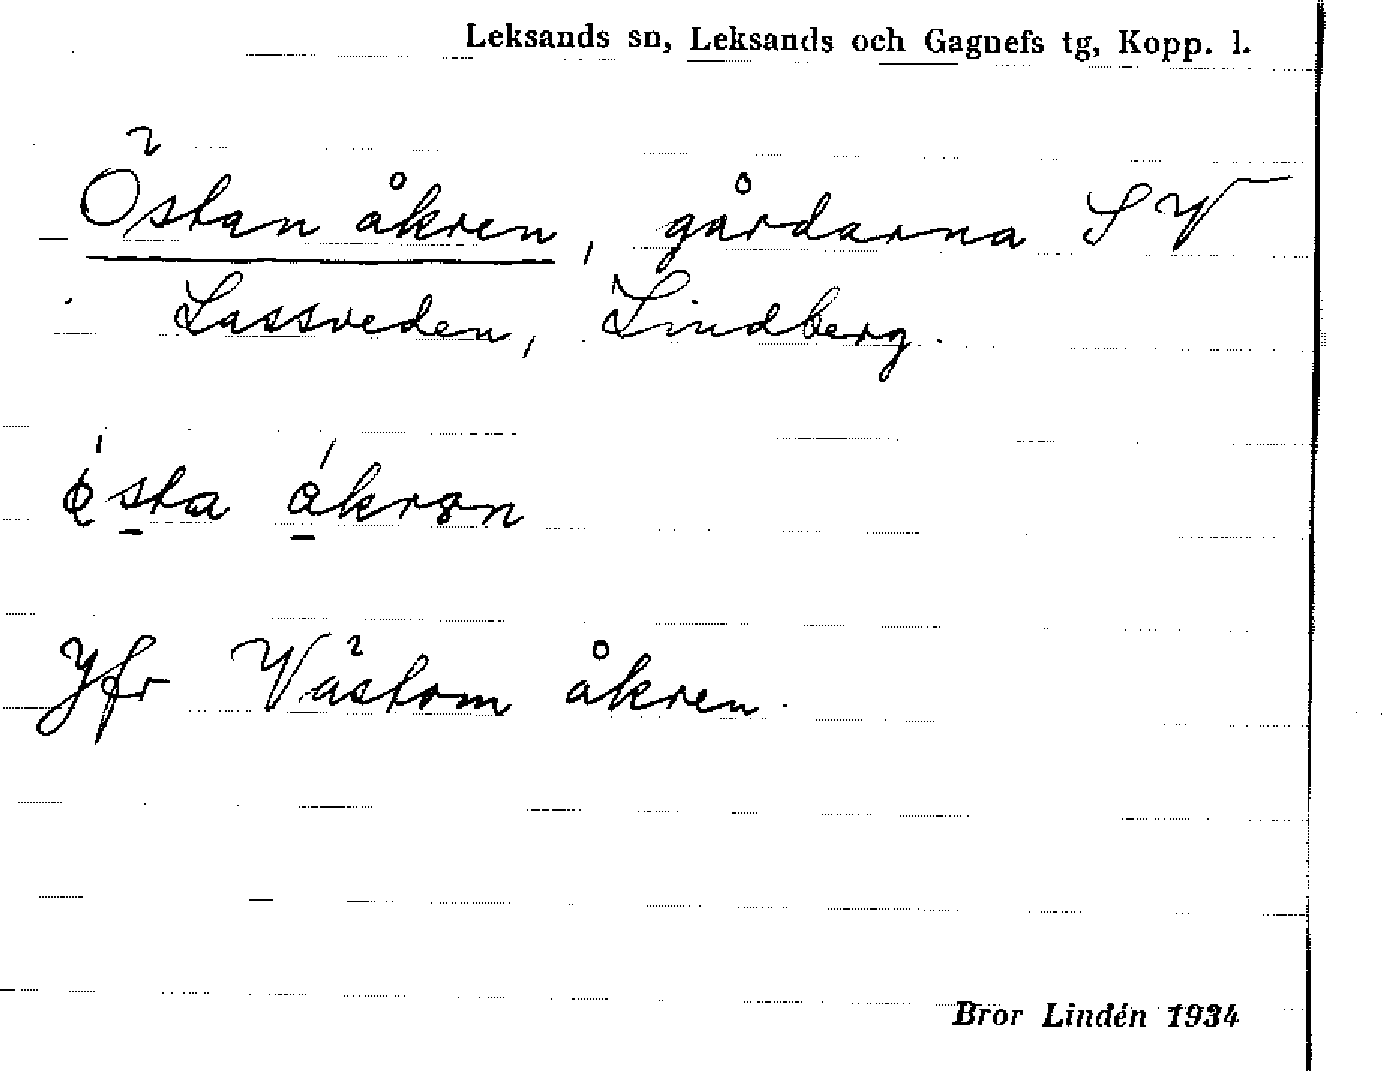 Leksands sn, Leksands och Gagnefs tg, Kopp. l.
Östan åkren, gårdarna S V
Lassveden, Lindberg.
ǿsta åkrən
Jfr Västom åkren.
Bror Lindén 1934